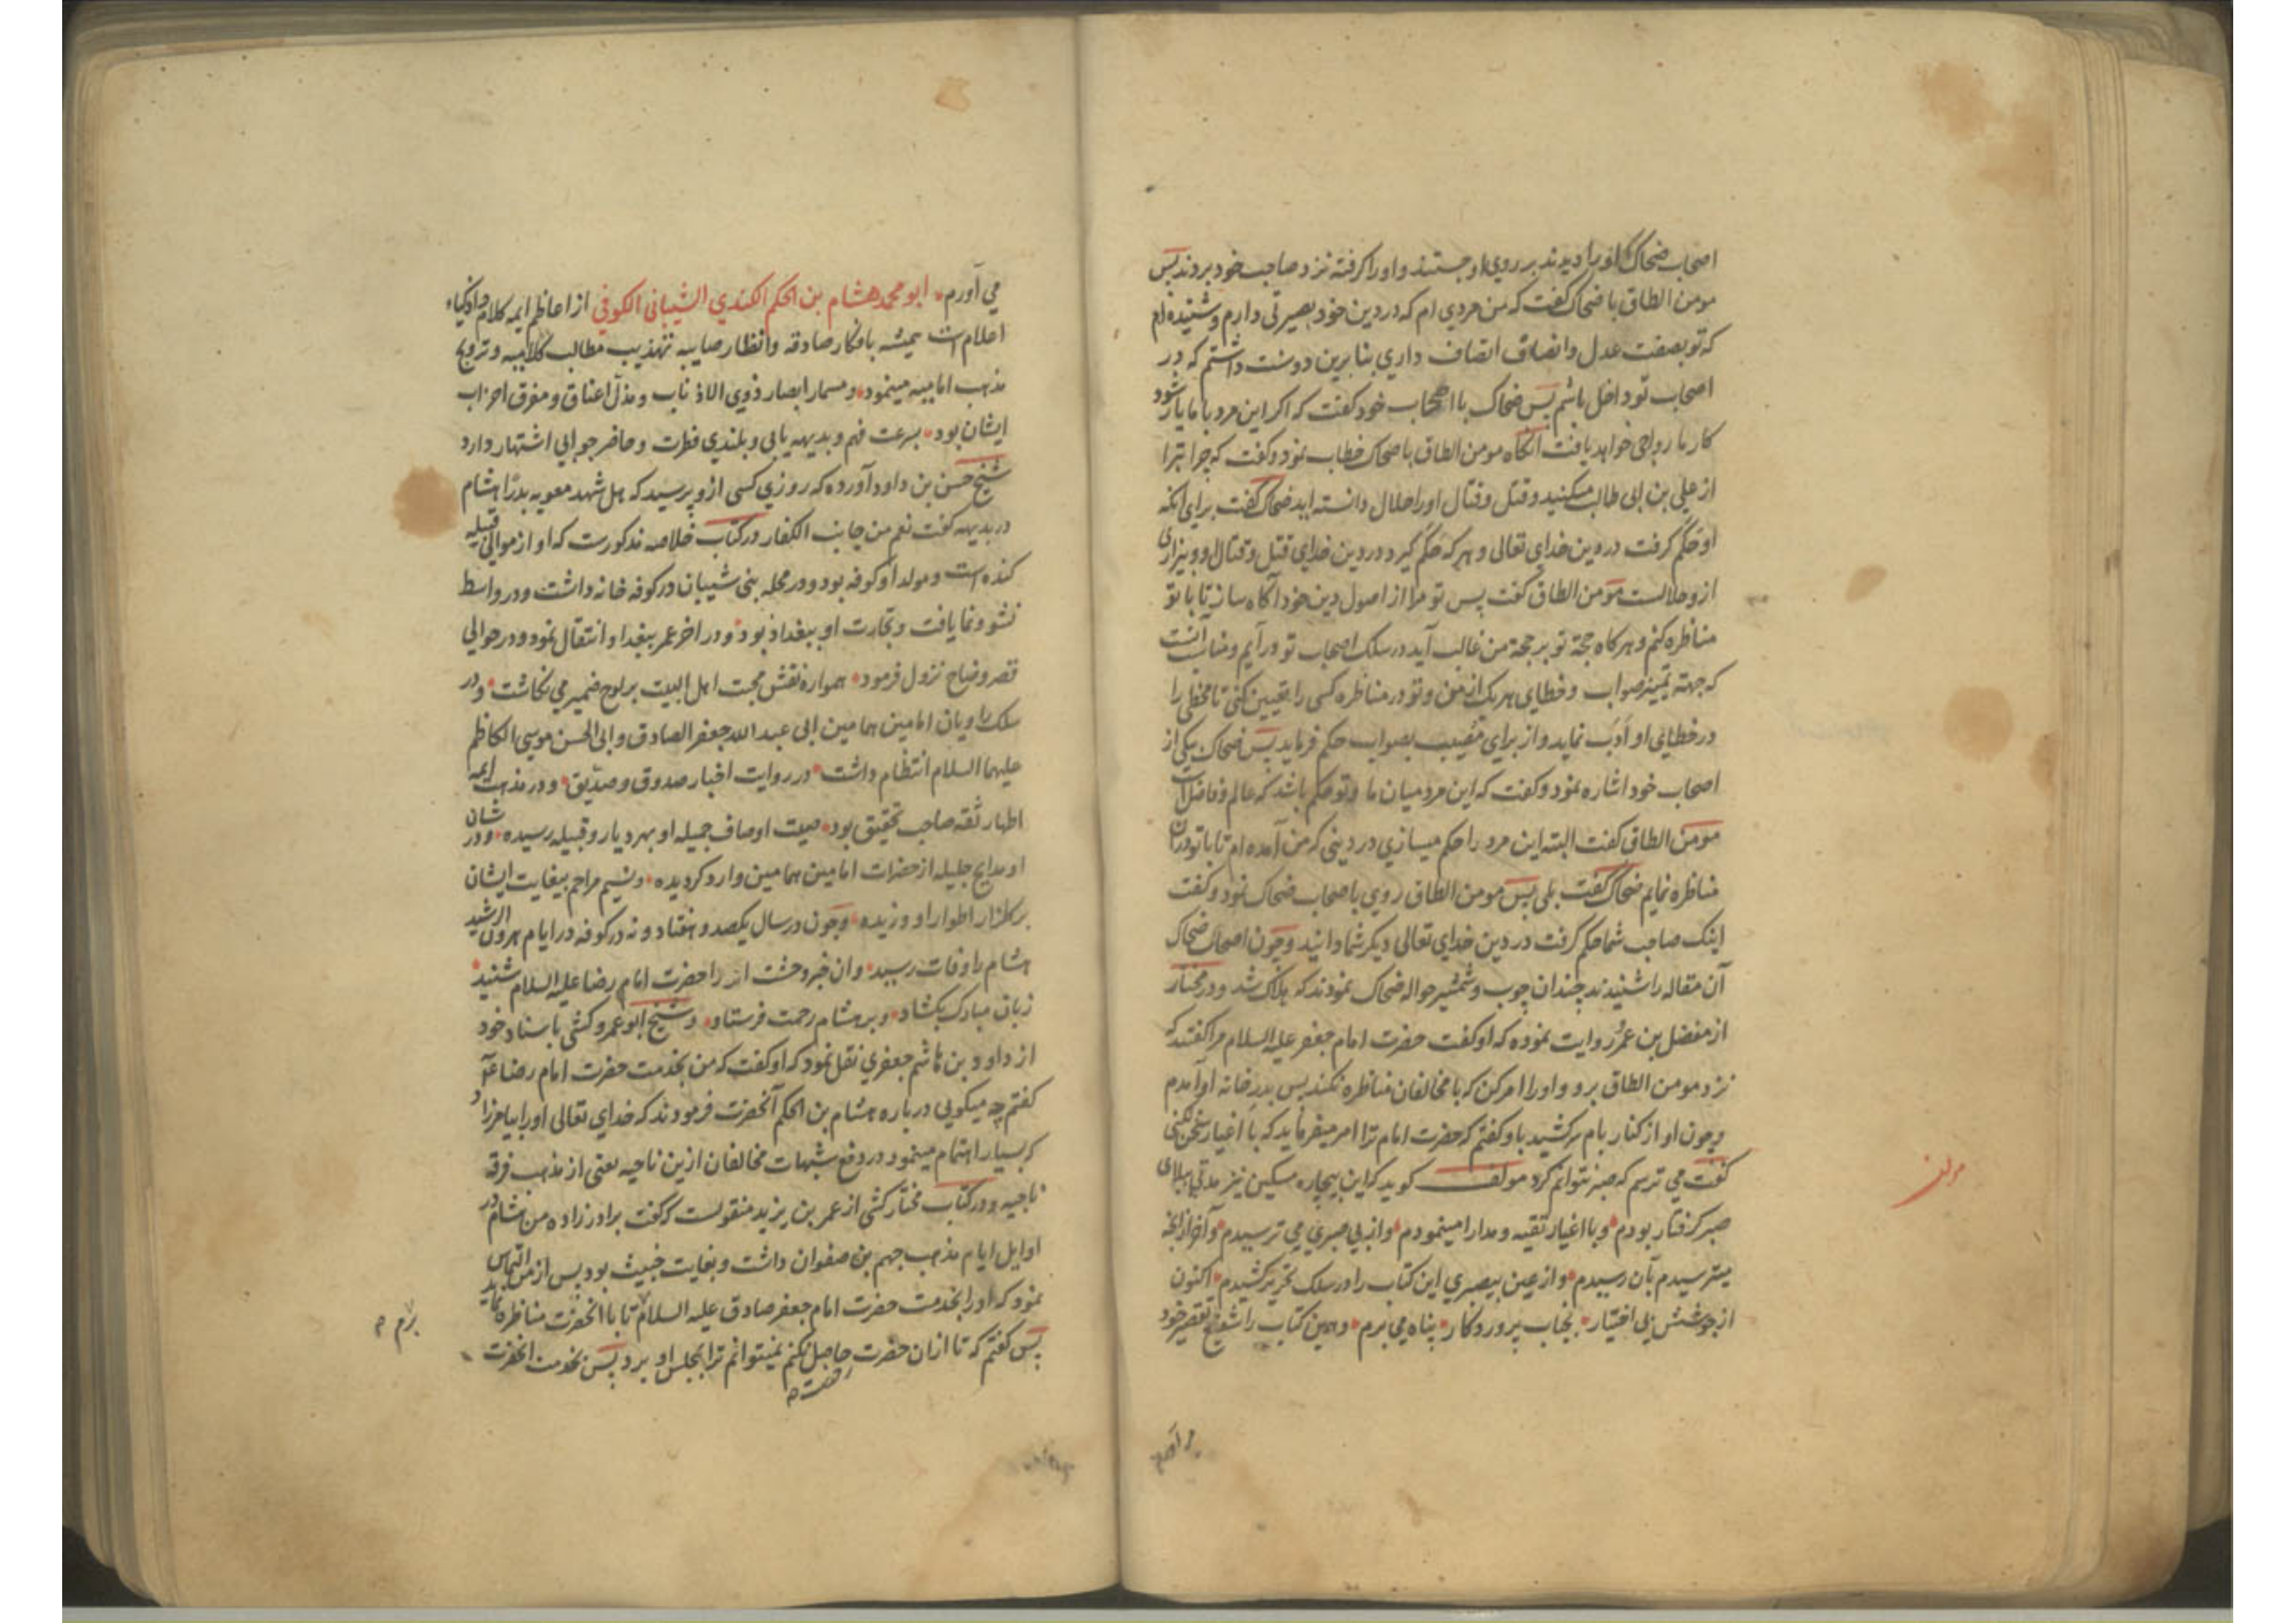 اصحاب ضحاک او را دیدند بر روی او جستند و او را کرفته نزد صاحب خود بردند پس
مومن الطاق با ضحاک کفت که من مردی ام که در دین خود بصیرتی دارم و شنیده ام
که تو بصفت عدل و انصاف اتصاف داری بنابرین دوست داشتم که در
اصحاب تو داخل باشم پس ضحاک با اصحاب خود کفت که اکر این مرد با ما یار شود
کار ما رواجی خواهد یافت آنکاه مومن الطاق با ضحاک خطاب نمود و کفت که چرا تبرا
از علی بن ابی طالب میکنید و قتل و قتال او را حلال دانسته اید ضحاک کفت برای آنکه
او حکم کرفت در دین خدای تعالی و هر که حکم کیرد در دین خدای قتل و قتال او و بیزاری
از و حلالست مومن الطاق کفت پس تو مرا از اصول دین خود آکاه ساز تا با تو
مناظره کنم و هرکاه حجة تو بر حجة من غالب آید در سلک اصحاب تو درآیم و مناسب آنست
که جهته تمییز صواب و خطای هر یک از من و تو در مناظره کسی را تعیین کنی تا مخطی را
در خطایی او ادب نماید و از برای مصیب بصواب حکم فرماید پس ضحاک بیکی از
اصحاب خود اشاره نمود و کفت که این مرد میان ما و تو حکم باشد که عالم و فاضل است
مومن الطاق کفت البته این مرد را حکم میسازی در دینی که من آمده ام تا با تو در آن
مناظره نمایم ضحاک کفت بلی پس مومن الطاق روی با صحاب ضحاک نمود و کفت
اینک صاحب شما حکم کرفت در دین خدای تعالی دیکر شما دانید و چون اصحاب ضحاک
آن مقاله را شنیدند چندان چوب و شمشیر حواله ضحاک نمودند که هلاک شد و در مختار
از مفضل بن عمر روایت نموده که او کفت حضرت امام جعفر علیه السلام مرا کفتند که
نزد مومن الطاق برو و او را امر کن که با مخالفان مناظره نکند پس بدر خانه او آمدم
و چون او از کنار بام سر کشید با و کفتم که حضرت امام ترا امر میفرماید که با اغیار سخن نکنی
کفت می ترسم که صبر نتوانم کرد مولف کوید که این بیچاره مسکین نیز مدتی ببلای
صبر کرفتار بودم و با اغیار تقیه و مدارا مینمودم و از بی صبری می ترسیدم و آخر از آنچه
میترسیدم بآن رسیدم و از عین بیصبری این کتاب را در سلک تحریر کشیدم اکنون
از جوشش بی اختیار بجناب پروردکار پناه می برم و همین کتاب را شفیع تقصیر خود
مولف
می آورم
می آورم ابو محمد هشام بن الحکم الکندی الشیبانی الکوفی از اعاظم ایمه کلام و اذکیاء
اعلام است همیشه بافکار صادقه و انظار صایبه تهذیب مطالب کلامیه و ترویج
مذهب امامیه مینمود و مسمار ابصار ذوی الاذناب و مذل اعناق و مفرق احزاب
ایشان بود بسرعت فهم و بدیهه یابی و بلندی فطرت و حاضر جوابی اشتهار دارد
شیخ حسن بن داود آورده که روزی کسی ازو پرسید که هل شهد معویه بدرا هشام
در بدیهه کفت نعم من جانب الکفار در کتاب خلاصه مذکورست که او از موالی قبیله
کنده است و مولد او کوفه بود و در محله بنی شیبان در کوفه خانه داشت و در واسط
نشو و نما یافت و تجارت او ببغداد بود و در اخر عمر ببغداد انتقال نمود و در حوالی
قصر وضاح نزول فرمود همواره نقش محبت اهل البیت بر لوح ضمیر می نکاشت و در
سلک راویان امامین همامین ابی عبد الله جعفر الصادق و ابی الحسن موسی الکاظم
علیهما السلام انتظام داشت در روایت اخبار صدوق و صدیق و در مذهب ایمه
اطهار ثقه صاحب تحقیق بود صیت اوصاف جمیله او بهر دیار و قبیله رسیده و در شان
او مدایح جلیله از حضرات امامین همامین وارد کردیده و نسیم مراحم بیغایت ایشان
بر کلزار اطوار او وزیده و چون در سال یکصد و هفتاد و نه در کوفه در ایام هرون الرشید
هشام را وفات رسید و ان خبر وحشت اثر را حضرت امام رضا علیه السلام شنید
زبان مبارک بکشاد و بر هشام رحمت فرستاد و شیخ ابو عمرو کشی باسناد خود
از داود بن هاشم جعفری نقل نمود که او کفت که من بخدمت حضرت امام رضا
کفتم چه میکویی در باره هشام بن الحکم آنحضرت فرمودند که خدای تعالی او را بیامرزاد
که بسیار اهتمام مینمود در دفع شبهات مخالفان ازین ناحیه یعنی از مذهب فرقه
ناجیه و در کتاب مختار کشی از عمر بن یزید منقولست که کفت برادر زاده من هشام در
اوایل ایام مذهب جهم بن صفوان داشت و بغایت خبیث بود پس از من التماس
نمود که او را بخدمت حضرت امام جعفر صادق علیه السلام تا با انحضرت مناظره نماید
پس کفتم که تا ازان حضرت حاصل نکنم نمیتوانم ترا بمجلس او برد پس بخدمت انحضرت
رخصت
برم